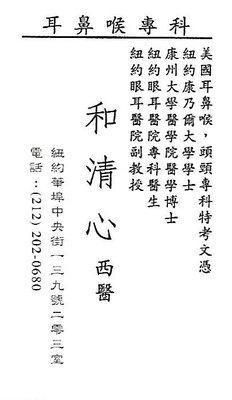 耳鼻喉專科
美國耳鼻喉，頭頸專科特考文憑
紐約康乃爾大學學士
康州大學醫學院醫學博士
紐約眼耳醫院專科醫生
紐約眼耳醫院副教授
和清心 西醫
紐約華埠中央街一三九號二零三室
電話：(212) 202-0680